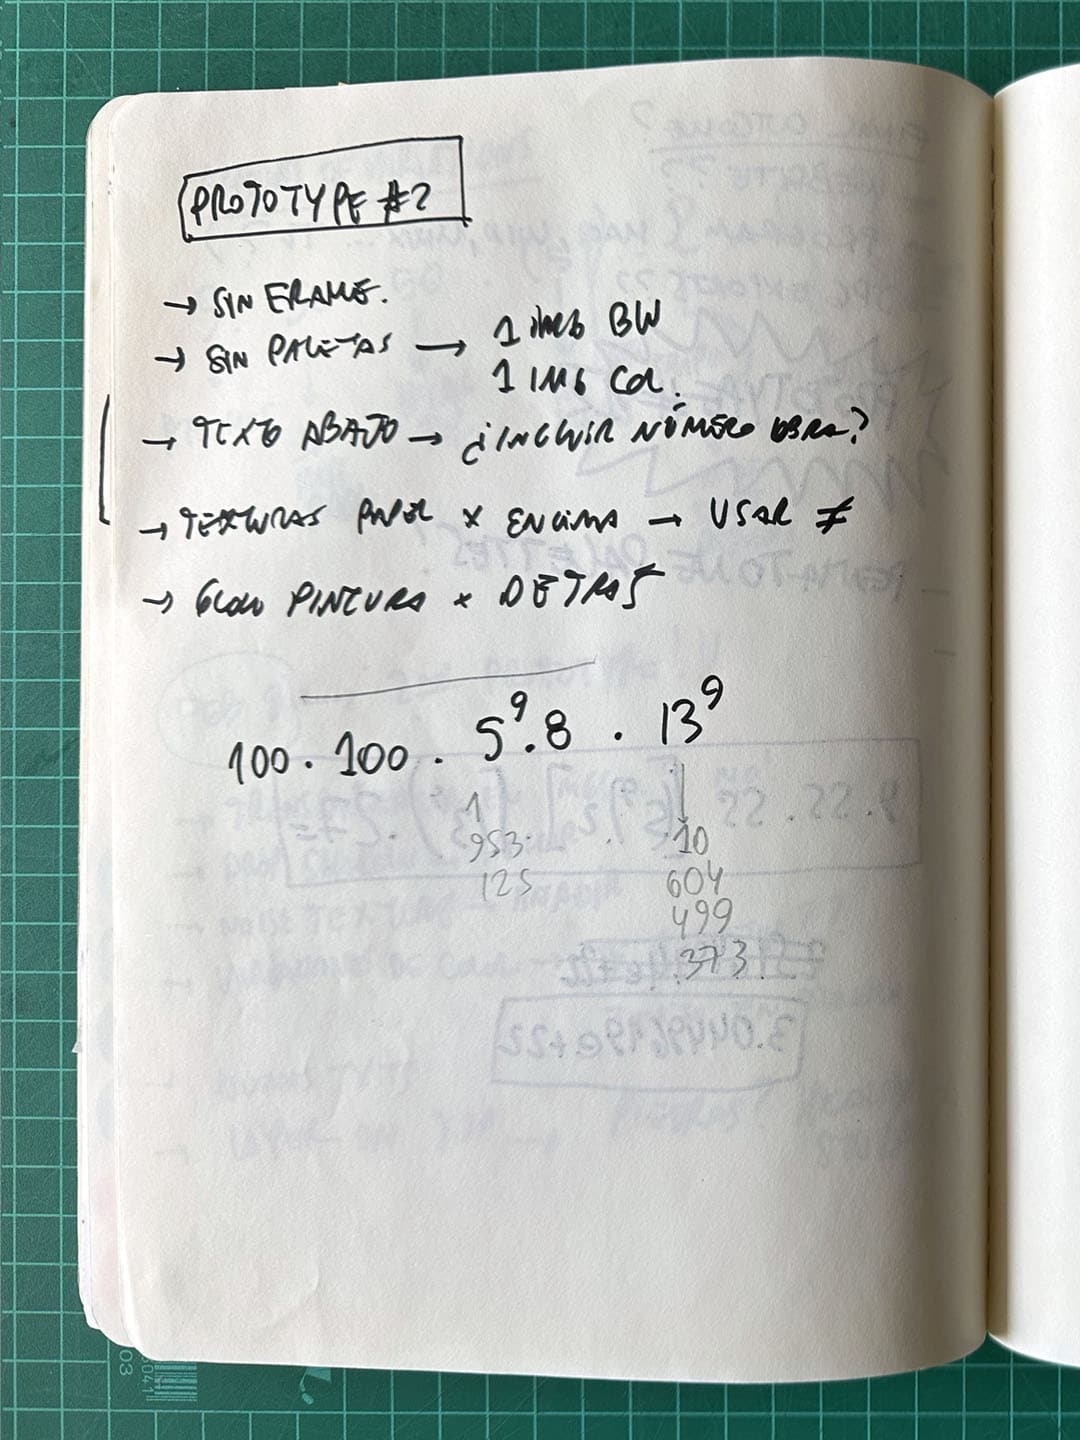 PROTOTYPE #2
→ SIN FRAME.
→ SIN PALETAS → 1 IMG BW
1 IMG COL.
→ TEXTO ABAJO → ¿INCLUIR NÚMERO OBRA?
→ TEXTURAS PAPEL x ENCIMA → USAR ≠
→ GLOW PINTURA x DETRAS
100 · 100 · 5⁹·8 · 13⁹
1
953
125
10
604
499
373
3.0449619e+22